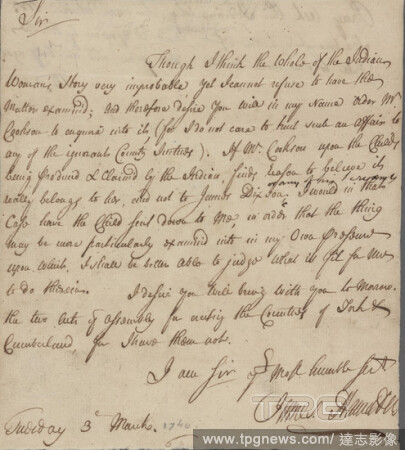 Sir
Though I think the Whole of the Indian
Woman's Story very improbable yet I cannot refuse to have the
Matter examined; and therefore desire you will in my Name order Mr.
Cookson to enquire into it (for I do not care to trust such an affair to
any of the ignorant County Justices). If Mr. Cookson upon the Child's
being produced & claimed by the Indian, finds reason to believe it
really belongs to her, and not to James Dixson or any of his I would in that
Case have the Child sent down to Me, in order that the thing
may be more particularly examined into in my Own presence
upon which, I shall be better able to judge what is fit for me
to do therein.
I desire you will bring with you to Morrow
the two Acts of Assembly for erecting the Counties of York &
Cumberland, for I have them not.
I am Sir Yr most humble Sert
James Hamilton
Tuesday 3d March. 1740
TPG
www.tpgnews.com / 達志影像